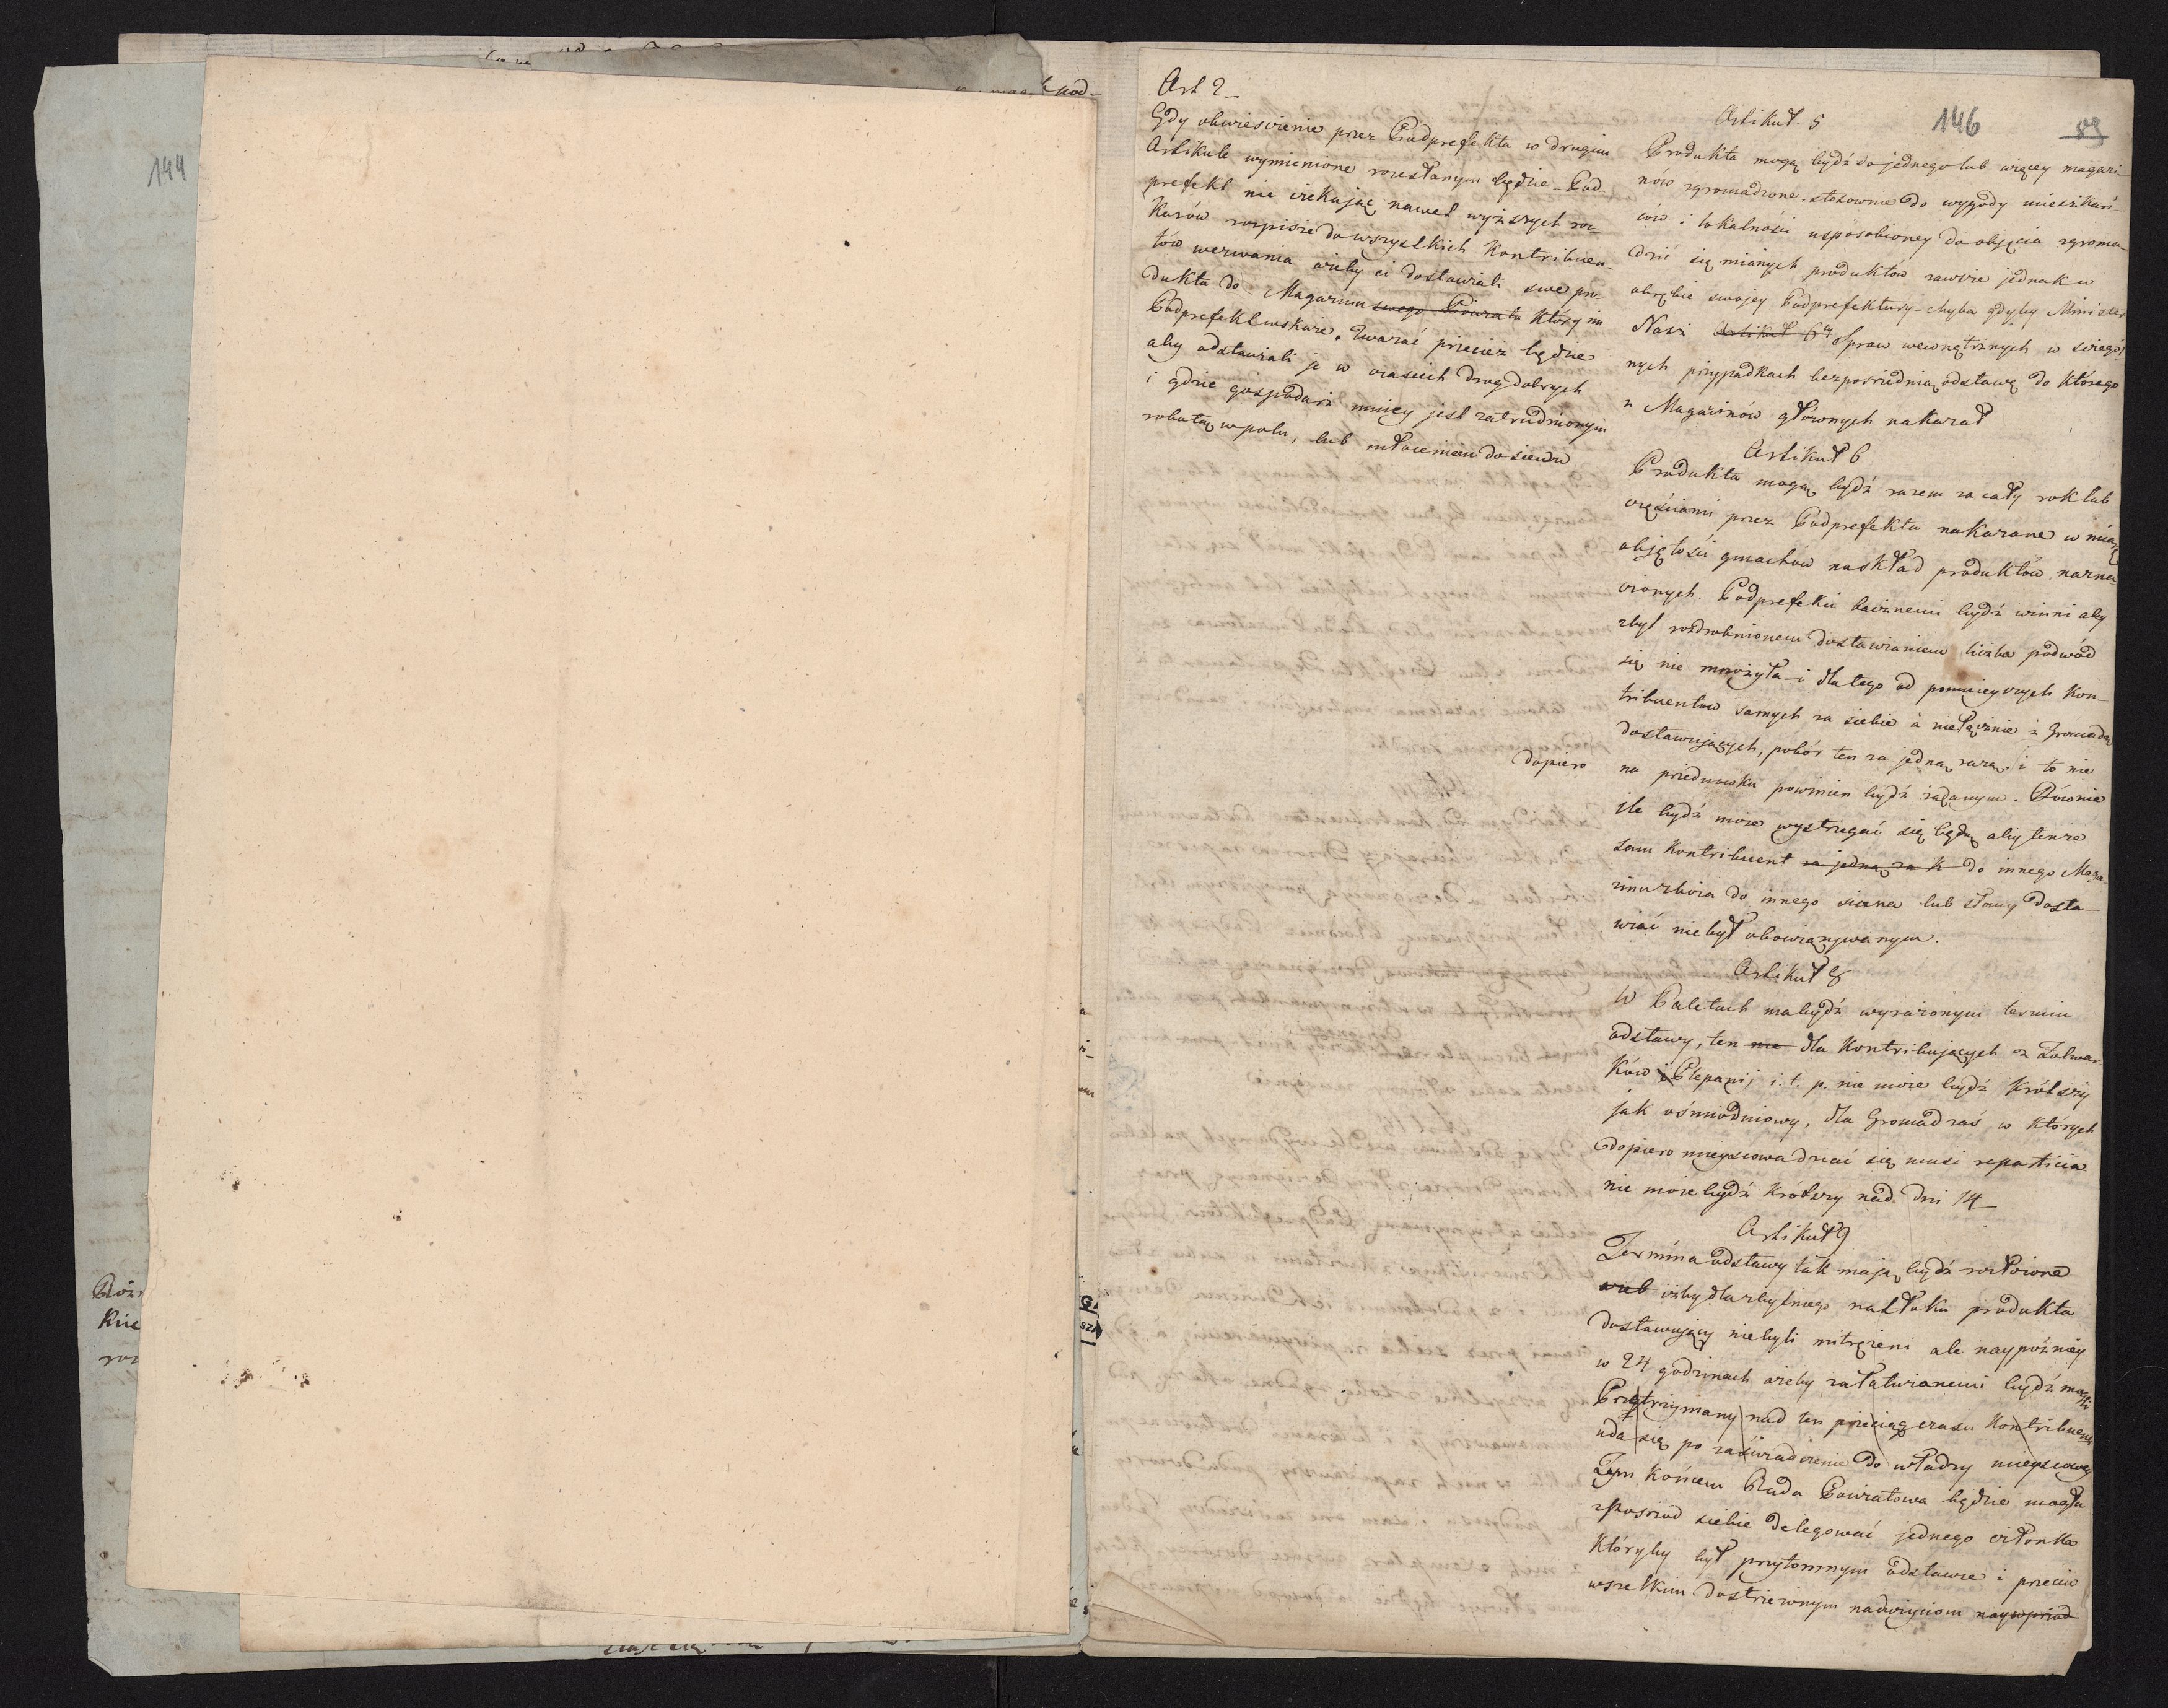 144
Art 2
Gdy obwiesczenie przez Podprefekta w drugim
Artikule wymienione rozesłanym będzie – Pod-
prefekt nie czekając nawet wyższych roz-
kazów rozpisze do wszystkich Kontribuen-
tów wezwania ażeby ci dostawiali swe pro-
dukta do Magazinu swego Powiatu który im
Podprefekt wskaże. Zważać przecież będzie
aby odstawiali je w czasiech drog dobrych
i gdzie gospodarz mniey jest zatrudnionym
robotą w polu, lub młoceniem do siewu
dopiero
146
89
Artikuł 5
Produkta mogą bydź do jednego lub więcey magazi-
nów zgromadzone, stosownie do wygody mieszkań-
ców i lokalności usposobioney do objęcia zgroma-
dzić się mianych produktów zawsze jednak w
obrębie swojey Podprefektury – chyba gdyby Minister
Nasz Artikuł 6ty Spraw wewnętrznych w sczegól-
nych przypadkach bezpośrednią odstawę do którego
z Magazinów głównych nakazał
Artikuł 6
Produkta mogą bydź razem za cały rok lub
częściami przez Podprefekta nakazane w miarę
objętości gmachów na skład produktów nazna-
czonych. Podprefekci bacznemi bydź winni aby
zbyt rozdrobnionem dostawianiem liczba podwód
się nie mnożyła – i dla tego od pomnieyszych Kon-
tribuentow samych za siebie a nie łącznie z Gromadą
dostawujących, pobór ten za jedną razą, i to nie
na przednowku powinien bydź żądanym. Równie
ile bydź może wystrzegać się będą aby tenże
sam Kontribuent za jedną ra k do innego Maga-
zinu zboża do innego siana lub słomy dosta-
wiać nie był obowiązywanym.
Artikuł 8
W Paletach ma bydź wyrażonym termin
odstawy, ten nie dla Kontribujących z Folwar-
ków i Plepanij i. t. p. nie może bydź krótszy
jak ośmiodniowy, dla Gromad zaś w których
dopiero mieyscowa dziać się musi reparticia
nie może bydź krótszy nad dni 14
Artikuł 9
Termina odstawy tak mają bydź rozłożone
ażby dla zbytniego natłoku produkta
dostawujący nie byli mitrężeni ale naypóźniey
w 24 godzinach ażeby załatwianemi bydź mogli
Przytrzymany nad ten przeciąg czasu Kontribuent
uda się po zaświadczenie do władzy mieyscowey
Tym końcem Rada Powiatowa będzie mogła
zpośrzod siebie delegować jednego członka
któryby był przytomnym odstawie i przeciw
wszelkim dostrzeżonym nadużyciom naywprzod